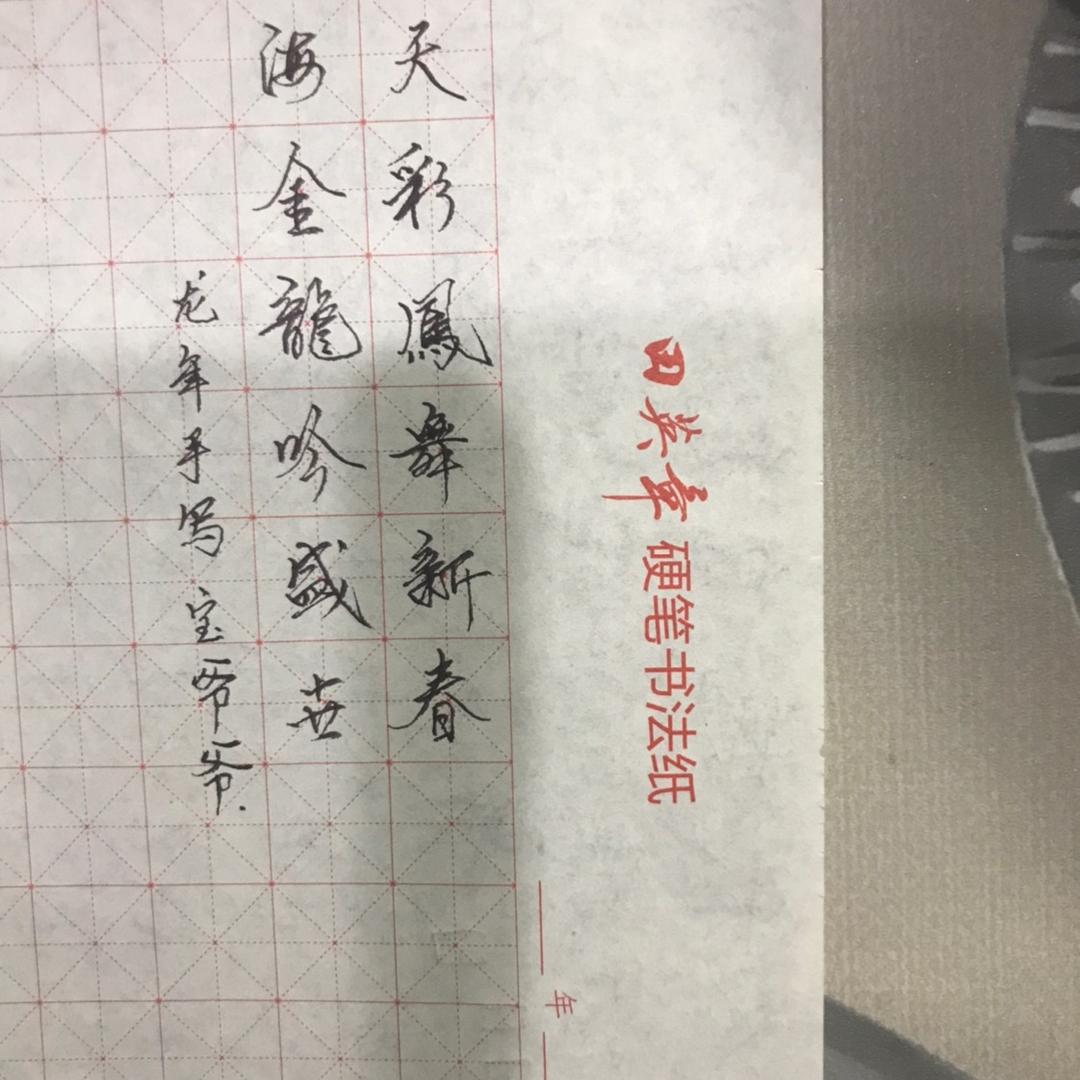 田英章硬笔书法纸
年
天彩鳳舞新春
海金龍吟盛世
龙年手写宝爷爷.